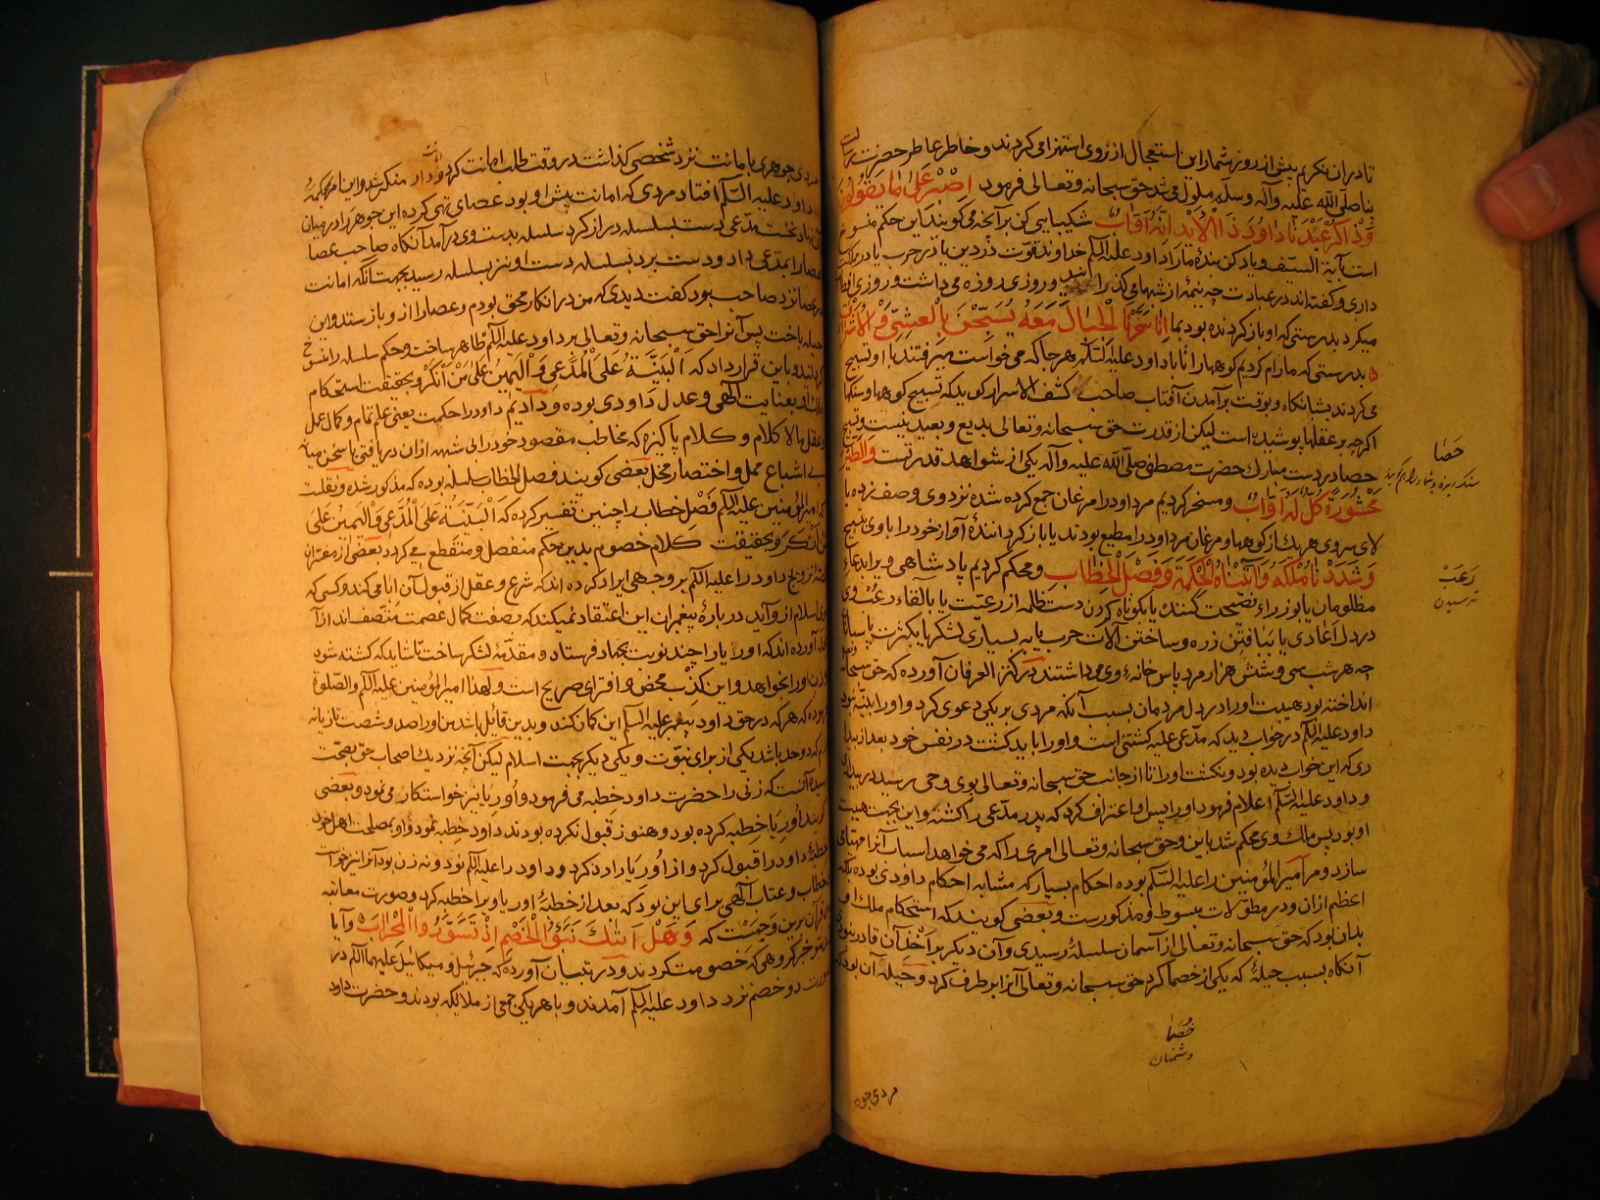 تا دران نکریم پیش از روز شمار این استعجال از روی استهزا می کردند و خاطر عاطر حضرت رسالت
پناه صلی الله علیه وآله وسلم ملول می شد حق سبحانه وتعالی فرمود اصبر علی ما یقولون
واذکر عبدنا داود ذا الاید انه اواب شکیبایی کن بر آنچه می کویند این حکم منسوخ
است بآیة السیف و یاد کن بندهٔ ما را داود علیه السلم خداوند قوت در دین یا در حرب یا در
داری و کفته اند در عبادت چه نیمهٔ از شبها می کذرانید و روزی روزه می داشت و روزی افطار
میکرد بدرستی که او باز کردنده بود بما انا سخرنا الجبال معه یسبحن بالعشی والاشراق
بدرستی که ما رام کردیم کوهها را تا با داود علیه السلم هر جا که می خواست می رفتند با او تسبیح
می کردند بشبانکاه و بوقت برآمدن آفتاب صاحب کشف الاسرار کوید که تسبیح کوهها و سنکها
اکرچه بر عقلها پوشیده است لیکن از قدرت حق سبحانه وتعالی بدیع و بعید نیست و تسبیح
حصا در دست مبارک حضرت مصطفی صلی الله علیه وآله یکی از شواهد قدرتست والطیر
محشورة کل له اواب و مسخر کردیم مر داود را مرغان جمع کرده شده نزد وی وصف زده با
لای سر وی هر یک از کوهها و مرغان مر داود را مطیع بودند یا باز کردانندهٔ آواز خود را با وی بتسبیح
وشددنا ملکه واتیناه الحکمة وفصل الخطاب و محکم کردیم پادشاهی ویرا بدعای
مظلومان یا بوزراء نصیحت کننده یا بکوتاه کردن دست ظلمه از رعیت یا بالقاء رعب وی
در دل اعادی یا ببافتن زره و ساختن آلات حرب یا به بسیاری لشکر یا بکثرت پاسبانان
چه هر شب سی و شش هزار مرد پاس خانهٔ وی می داشتند در کنز العرفان آورده که حق سبحانه
انداخته بود هیبت او را در دل مردمان بسبب آنکه مردی بر یکی دعوی کرد و او را بینه نبود
داود علیه السلم در خواب دید که مدعی علیه کشتنی است و او را باید کشت در نفس خود بعد از
ری که این خواب دیده بود و نکشت او را تا از جانب حق سبحانه وتعالی بوی وحی رسید در بیداری
و داود علیه السلم اعلام فرمود او را پس او اعتراف کرد که پدر مدعی را کشته و این بجهت هیبت
او بود پس ملک وی محکم شد باین و حق سبحانه وتعالی امری را که می خواهد اسباب آنرا مهیا می
سازد و مر امیر المؤمنین را علیه السلم بوده احکام بسیار که مشابه احکام داودی بوده بلکه
اعظم ازان و در مطولات مبسوط و مذکورست و بعضی کویند که استحکام ملک او
بدان بود که حق سبحانه وتعالی از آسمان سلسلهٔ فرستادی و آن دیکر بر اخذ آن قادر نبودی
آنکاه بسبب حیلهٔ که یکی از خصما کرد حق سبحانه وتعالی آنرا بر طرف کرد و حیله آن بود که
حصا
سنک ریزه
رعب
ترسیدن
خصما
دشمنان
مردی جو
مردی جوهری بامانت نزد شخصی کذاشت در وقت طلب امانت کرد منکر شد و این امر بمحکمهٔ
داود علیه السلم افتاد مردی که امانت پیش او بود عصای تهی کرده این جوهر را در میان
آن نهاد نخست مدعی دست بسلسله دراز کرد سلسله بدست وی درآمد آنکاه صاحب عصا
عصا را بمدعی داد و دست برد بسلسله دست او نیز بسلسله رسید بجهت آنکه امانت
در عصا نزد صاحب بود کفت دیدی که من در انکار محق بودم و عصا را از و باز ستد و این
حیله باخت پس آنرا حق سبحانه وتعالی بر داود علیه السلم ظاهر ساخت و حکم سلسله را نسخ
کردانید و باین قرار داد که البینة علی المدعی والیمین علی من انکر و بحقیقت استحکام
ملک او بعنایت الهی و عدل داودی بوده و دادیم داود را حکمت یعنی علم تمام و کمال عمل
و عقل مالاکلام و کلام پاکیزه که مخاطب مقصود خود را بی شبهه ازان دریافتی یا سخن میانه
بی اشباع ممل و اختصار مخل بعضی کویند فصل الخطاب سلسله بوده که مذکور شد و نقلست
که امیر المؤمنین علیه السلم فصل خطاب را چنین تفسیر کرده که البینة علی المدعی والیمین علی
من انکر و بحقیقت کلام خصوم بدین حکم منفصل و منقطع می کردد بعضی از مفسران
قصه تزویج داود را علیه السلم بر وجهی ایراد کرده اند که شرع و عقل از قبول آن ابا می کند و کسی که
بوی اسلام از و آید در بارهٔ پیغمبران این اعتقاد نمیکند که بصفت کمال عصمت متصف اند از آنجمله
آورده اند که اوریا را چند نوبت بجهاد فرستاد و مقدمهٔ لشکر ساخت تا شاید که کشته شود
و زن او را بخواهد و این کذب محض و افترای صریح است و لهذا امیر المؤمنین علیه السلم والصلوة
فرموده که هر که در حق داود پیغمبر علیه السلم این کمان کند و بدین قائل باشد من او را صد و شصت تازیانه
زنم که دو حد باشد یکی از برای نبوت و یکی دیکر بجهت اسلام لیکن آنچه نزدیک اصحاب حق بصحت
رسیده آنست که زنی را حضرت داود خطبه می فرمود و اوریا نیز خواستکاری می نمود و بعضی
کویند اوریا خطبه کرده بود و هنوز قبول نکرده بودند داود خطبه نمود و او بمصلحت اهل خود
خطبهٔ داود را قبول کرد و از اوریا را رد کرد و داود را علیه السلم نود و نه زن بود آنرا نیز خواست
خطاب و عتاب الهی برای این بود که بعد از خطبهٔ اوریا ویرا خطبه کرد و صورت معاتبه
در قرآن برین وجهست که وهل اتیک نبؤا الخصم اذ تسوروا المحراب و آیا
آمد بتو خبر کروهی که خصومت کردند و در تبیان آورده که جبرئیل و میکائیل علیهما السلم در
صورت دو خصم نزد داود علیه السلم آمدند و با هر یکی جمعی از ملائکه بودند و حضرت داود